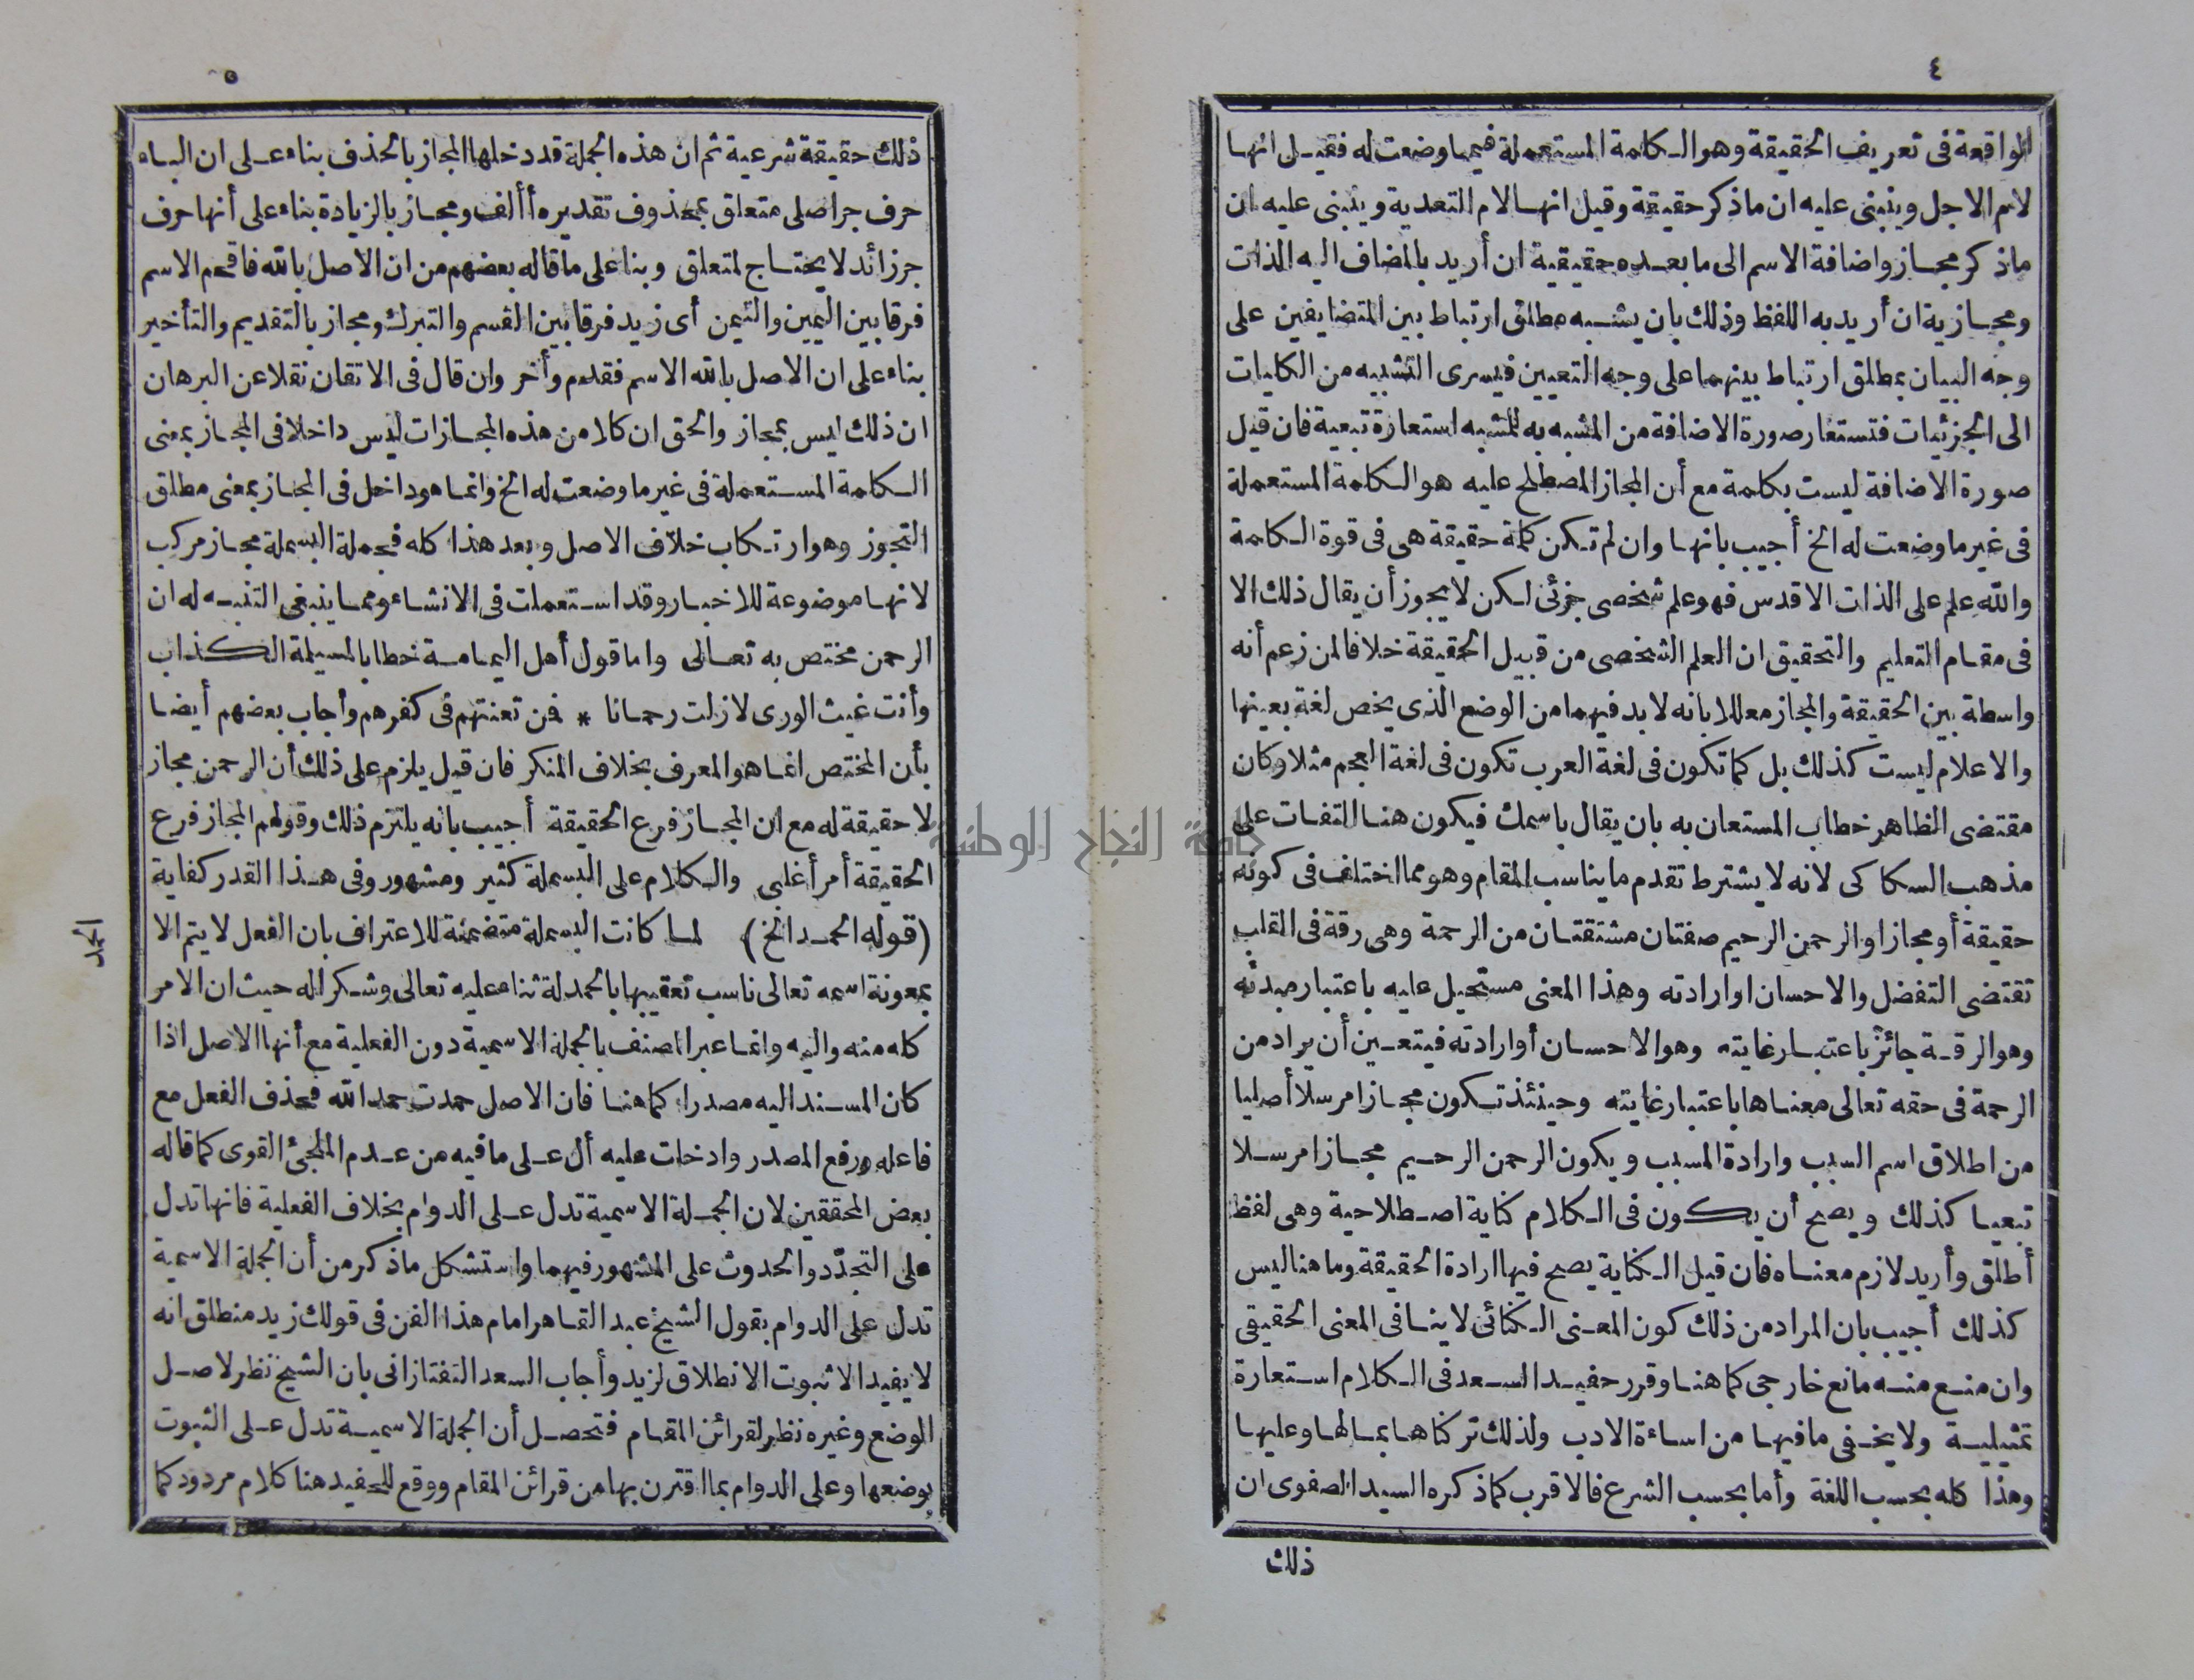 ٤
الواقعة فى تعريف الحقيقة وهو الكلمة المستعملة فيما وضعت له فقيل انها
لام الاجل وينبنى عليه ان ماذكر حقيقة وقيل انها لام التعدية وينبنى عليه ان
ماذكر مجاز واضافة الاسم الى ما بعده حقيقية ان أريد بالمضاف اليه الذات
ومجازية ان أريد به اللفظ وذلك بان يشبه مطلق ارتباط بين المتضايفين على
وجه البيان بمطلق ارتباط بينهما على وجه التعيين فيسرى التشبيه من الكليات
الى الجزئيات فتستعار صورة الاضافة من المشبه به للمشبه استعارة تبعية فان قيل
صورة الاضافة ليست بكلمة مع أن المجاز المصطلح عليه هو الكلمة المستعملة
فى غير ما وضعت له الخ أجيب بانها وان لم تكن كلمة حقيقة هى فى قوة الكلمة
والله علم على الذات الاقدس فهو علم شخصى جزئى لكن لا يجوز أن يقال ذلك الا
فى مقام التعليم والتحقيق ان العلم الشخصى من قبيل الحقيقة خلافا لمن زعم أنه
واسطة بين الحقيقة والمجاز معللا بانه لا بد فيهما من الوضع الذى يخص لغة بعينها
والاعلام ليست كذلك بل كما تكون فى لغة العرب تكون فى لغة العجم مثلا وكان
مقتضى الظاهر خطاب المستعان به بان يقال باسمك فيكون هنا التفات على
مذهب السكاكى لانه لا يشترط تقدم ما يناسب المقام وهو مما اختلف فى كونه
حقيقة أو مجازا والرحمن الرحيم صفتان مشتقتان من الرحمة وهى رقة فى القلب
تقتضى التفضل والاحسان او ارادته وهذا المعنى مستحيل عليه باعتبار مبدئه
وهو الرقة جائز باعتبار غايته وهو الاحسان أو ارادته فيتعين أن يراد من
الرحمة فى حقه تعالى معناها باعتبار غايته وحينئذ تكون مجازا مرسلا أصليا
من اطلاق اسم السبب وارادة المسبب ويكون الرحمن الرحيم مجازا مرسلا
تبعيا كذلك ويصح أن يكون فى الكلام كناية اصطلاحية وهى لفظ
أطلق وأريد لازم معناه فان قيل الكناية يصح فيها ارادة الحقيقة وما هنا ليس
كذلك أجيب بان المراد من ذلك كون المعنى الكنائى لا ينافى المعنى الحقيقى
وان منع منه مانع خارجى كما هنا وقرر حفيد السعد فى الكلام استعارة
تمثيلية ولا يخفى ما فيها من اساءة الادب ولذلك تركناها بمالها وعليها
وهذا كله بحسب اللغة وأما بحسب الشرع فالاقرب كما ذكره السيد الصفوى ان
ذلك
٥
ذلك حقيقة شرعية ثم ان هذه الجملة قد دخلها المجاز بالحذف بناء على ان الباء
حرف جر اصلى متعلق بمحذوف تقديره أألف ومجاز بالزيادة بناء على أنها حرف
جر زائد لا يحتاج لمتعلق وبنا على ما قاله بعضهم من ان الاصل بالله فاقحم الاسم
فرقا بين اليمين والتيمن أى زيد فرقا بين القسم والتبرك ومجاز بالتقديم والتأخير
بناء على ان الاصل بالله الاسم فقدم وأخر وان قال فى الاتقان نقلا عن البرهان
ان ذلك ليس بمجاز والحق ان كلا من هذه المجازات ليس داخلا فى المجاز بمعنى
الكلمة المستعملة فى غير ما وضعت له الخ وانما هو داخل فى المجاز بمعنى مطلق
التجوز وهو ارتكاب خلاف الاصل وبعد هذا كله فجملة البسملة مجاز مركب
لانها موضوعة للاخبار وقد استعملت فى الانشاء ومما ينبغى التنبه له ان
الرحمن مختص به تعالى واما قول أهل اليمامة خطابا لمسيلمة الكذاب
وأنت غيث الورى لازلت رحمانا * فن تعنتهم فى كفرهم وأجاب بعضهم أيضا
بأن المختص انما هو المعرف بخلاف المنكر فان قيل يلزم على ذلك أن الرحمن مجاز
لا حقيقة له مع ان المجاز فرع الحقيقة أجيب بانه يلتزم ذلك وقولهم المجاز فرع
الحقيقة أمر أغلبى والكلام على البسملة كثير ومشهور وفى هذا القدر كفاية
(قوله الحمد الخ) لما كانت البسملة متضمنة للاعتراف بان الفعل لا يتم الا
بمعونة اسمه تعالى ناسب تعقيبها بالحمدلة ثناء عليه تعالى وشكرا له حيث ان الامر
كله منه واليه وانما عبر المصنف بالجملة الاسمية دون الفعلية مع أنها الاصل اذا
كان المسند اليه مصدرا كما هنا فان الاصل حمدت حمد الله فحذف الفعل مع
فاعله ورفع المصدر وادخلت عليه أل على ما فيه من عدم الملجئ القوى كما قاله
بعض المحققين لان الجملة الاسمية تدل على الدوام بخلاف الفعلية فانها تدل
على التجدد والحدوث على المشهور فيهما واستشكل ماذكر من أن الجملة الاسمية
تدل على الدوام بقول الشيخ عبد القاهر امام هذا الفن فى قولك زيد منطلق انه
لا يفيد الا ثبوت الانطلاق لزيد وأجاب السعد التفتازانى بان الشيخ نظر لاصل
الوضع وغيره نظر لقرائن المقام فتحصل أن الجملة الاسمية تدل على الثبوت
بوضعها وعلى الدوام بما اقترن بها من قرائن المقام ووقع للحفيد هنا كلام مردود كما
الحمد
جامعة النجاح الوطنية